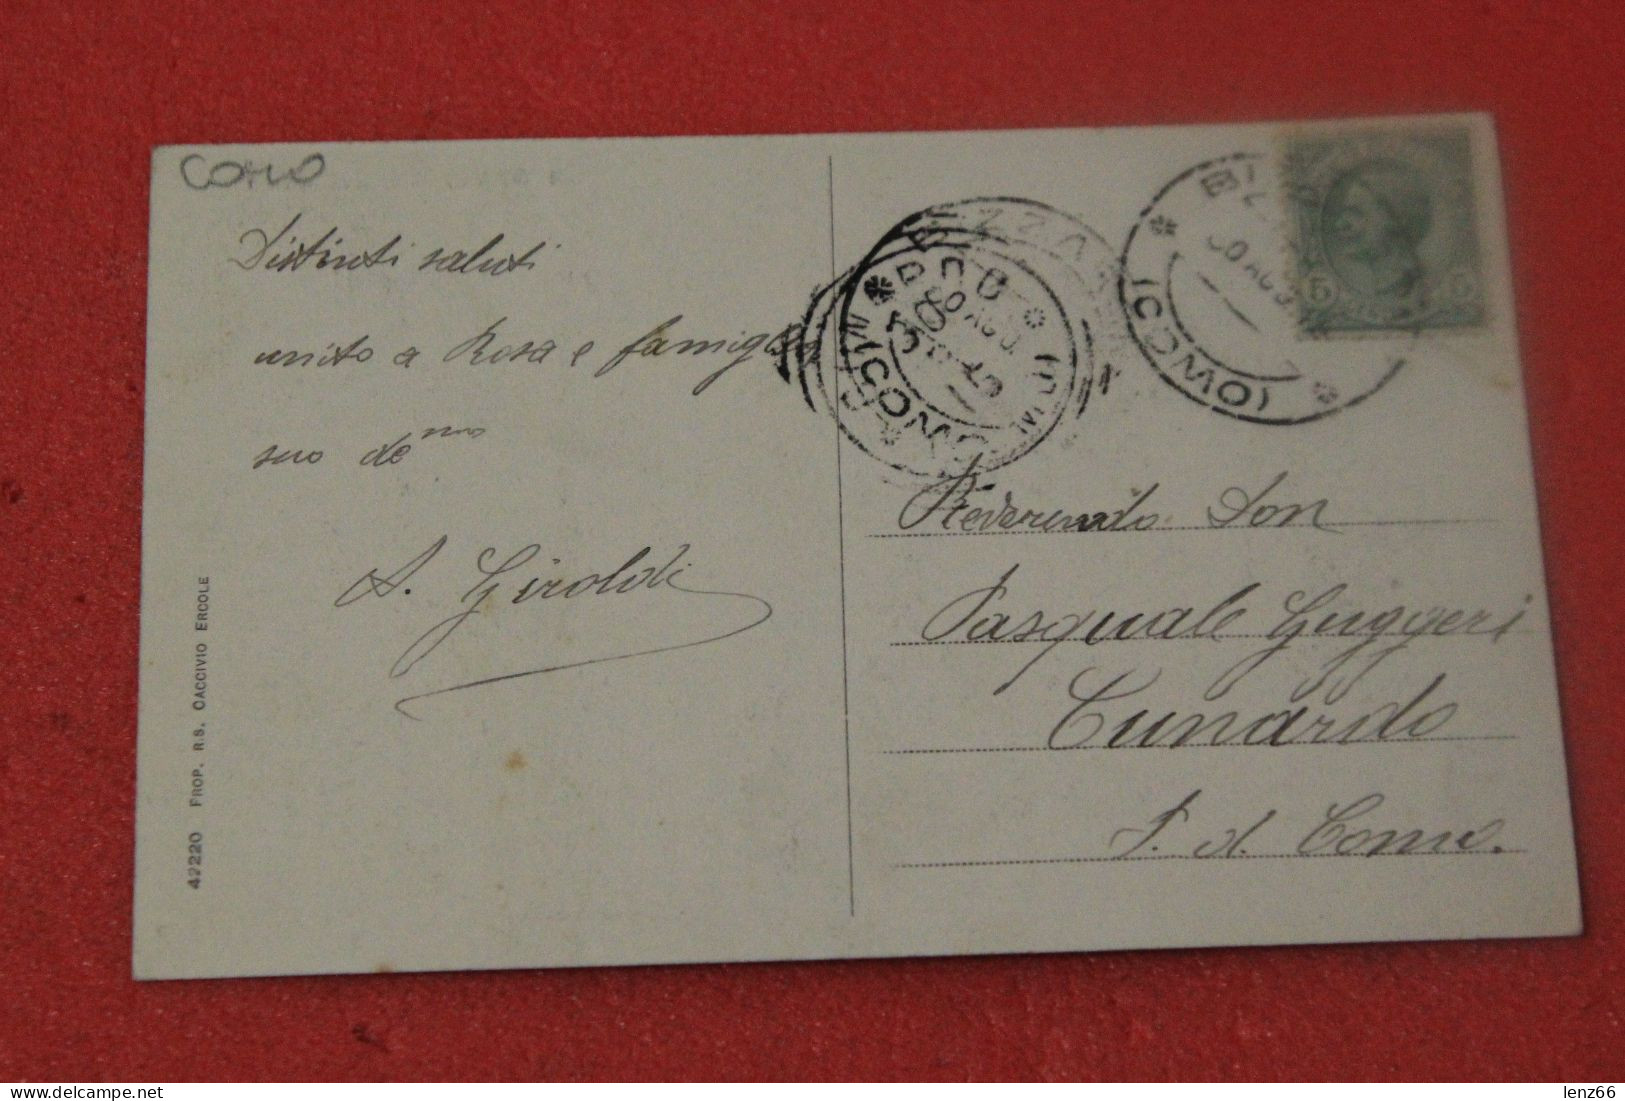 COMO
Distinti saluti
unito a Rosa e famiglia
suo de mo
A. Giroldi
42220 PROP. R.S. CACCIVIO ERCOLE
BIZZAR
(COMO)
30 AGO
(COMO)
5
5
Reverendo Don
Pasquale Guggeri
Cunardo
P. d. Como.
lenz66